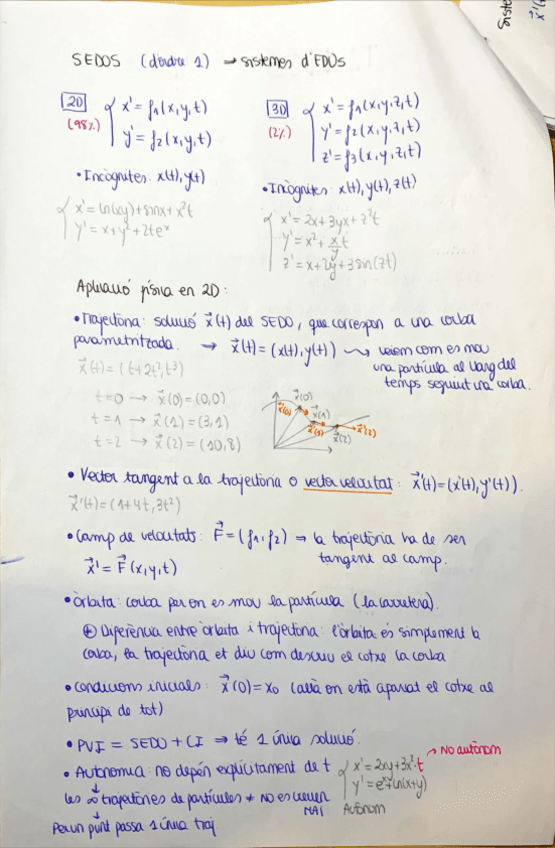 SEDOS (d'ordre 1) → sistemes d'EDOs
2D
(98%)
{ x' = f1(x,y,t)
y' = f2(x,y,t)
• Incògnites: x(t), y(t)
{ x' = ln(xy) + sinx + x²t
y' = x + y² + 2teˣ
3D
(2%)
{ x' = f1(x,y,z,t)
y' = f2(x,y,z,t)
z' = f3(x,y,z,t)
• Incògnites: x(t), y(t), z(t)
{ x' = 2x + 3yx + z²t
y' = x² + x/y t
z' = x + 2y + 3sin(zt)
Aplicació física en 2D:
• Trajectòria: solució x⃗(t) del SEDO, que correspon a una corba
parametritzada. → x⃗(t) = (x(t), y(t)) ⇝ veiem com es mou
una partícula al llarg del
temps seguint una corba.
x⃗(t) = (t+2t², t³)
t=0 → x⃗(0) = (0,0)
t=1 → x⃗(1) = (3,1)
t=2 → x⃗(2) = (10,8)
x⃗(0)
x⃗'(0)
x⃗(1)
x⃗'(1)
x⃗(2)
x⃗'(2)
• Vector tangent a la trajectòria o vector velocitat: x⃗'(t) = (x'(t), y'(t)).
x⃗'(t) = (1+4t, 3t²)
• Camp de velocitats: F⃗ = (f1, f2) ⇒ la trajectòria ha de ser
tangent al camp.
x⃗' = F⃗(x,y,t)
• òrbita: corba per on es mou la partícula (la carretera).
⊕ Diferència entre òrbita i trajectòria: l'òrbita és simplement la
corba, la trajectòria et diu com descriu el cotxe la corba
• condicions inicials: x⃗(0) = x0 (allà on està aparcat el cotxe al
principi de tot)
• PVI = SEDO + CI ⇒ té 1 única solució.
• Autonomia: no depèn explícitament de t
{ x' = 2xy + 3x²·t
→ No autònom
y' = eˣʸ + ln(x+y)
Autònom
↓
les ∞ trajectòries de partícules ≠ no es creuen
MAI
↓
Per un punt passa 1 única traj
Siste
x⃗'(